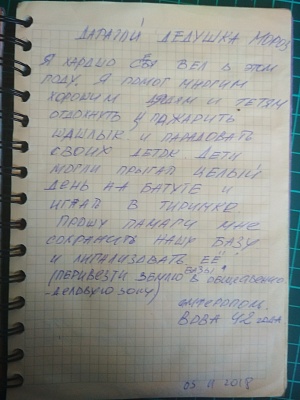 ДАРАГОЙ ДЕДУШКА МОРОЗ
Я ХАРАШО СБУ ВЕЛ В ЭТОМ
ГОДУ. Я ПОМОГ МНОГИМ
ХОРОШИМ ДЯДЯМ И ТЕТЯМ
ОТДОХНУТЬ И ПАЖАРИТЬ
ШАШЛЫК И ПАРАДОВАТЬ
СВОИХ ДЕТОК. ДЕТИ
МОГЛИ ПРЫГАТ ЦЕЛЫЙ
ДЕНЬ НА БАТУТЕ И
ИГРАТ В
ПРОШУ ПАМАГИ МНЕ
СОХРАНИТЬ НАШУ БАЗУ
И ЛИГАЛИЗОВАТЬ ЕЁ
(ПЕРИВЕЗТИ ЗЕМЛЮ БАЗЫ В ОБЩЕСТВЕННО
-ДЕЛОВУЮ ЗОНУ)
ВОВА 42 ГОДА
2018